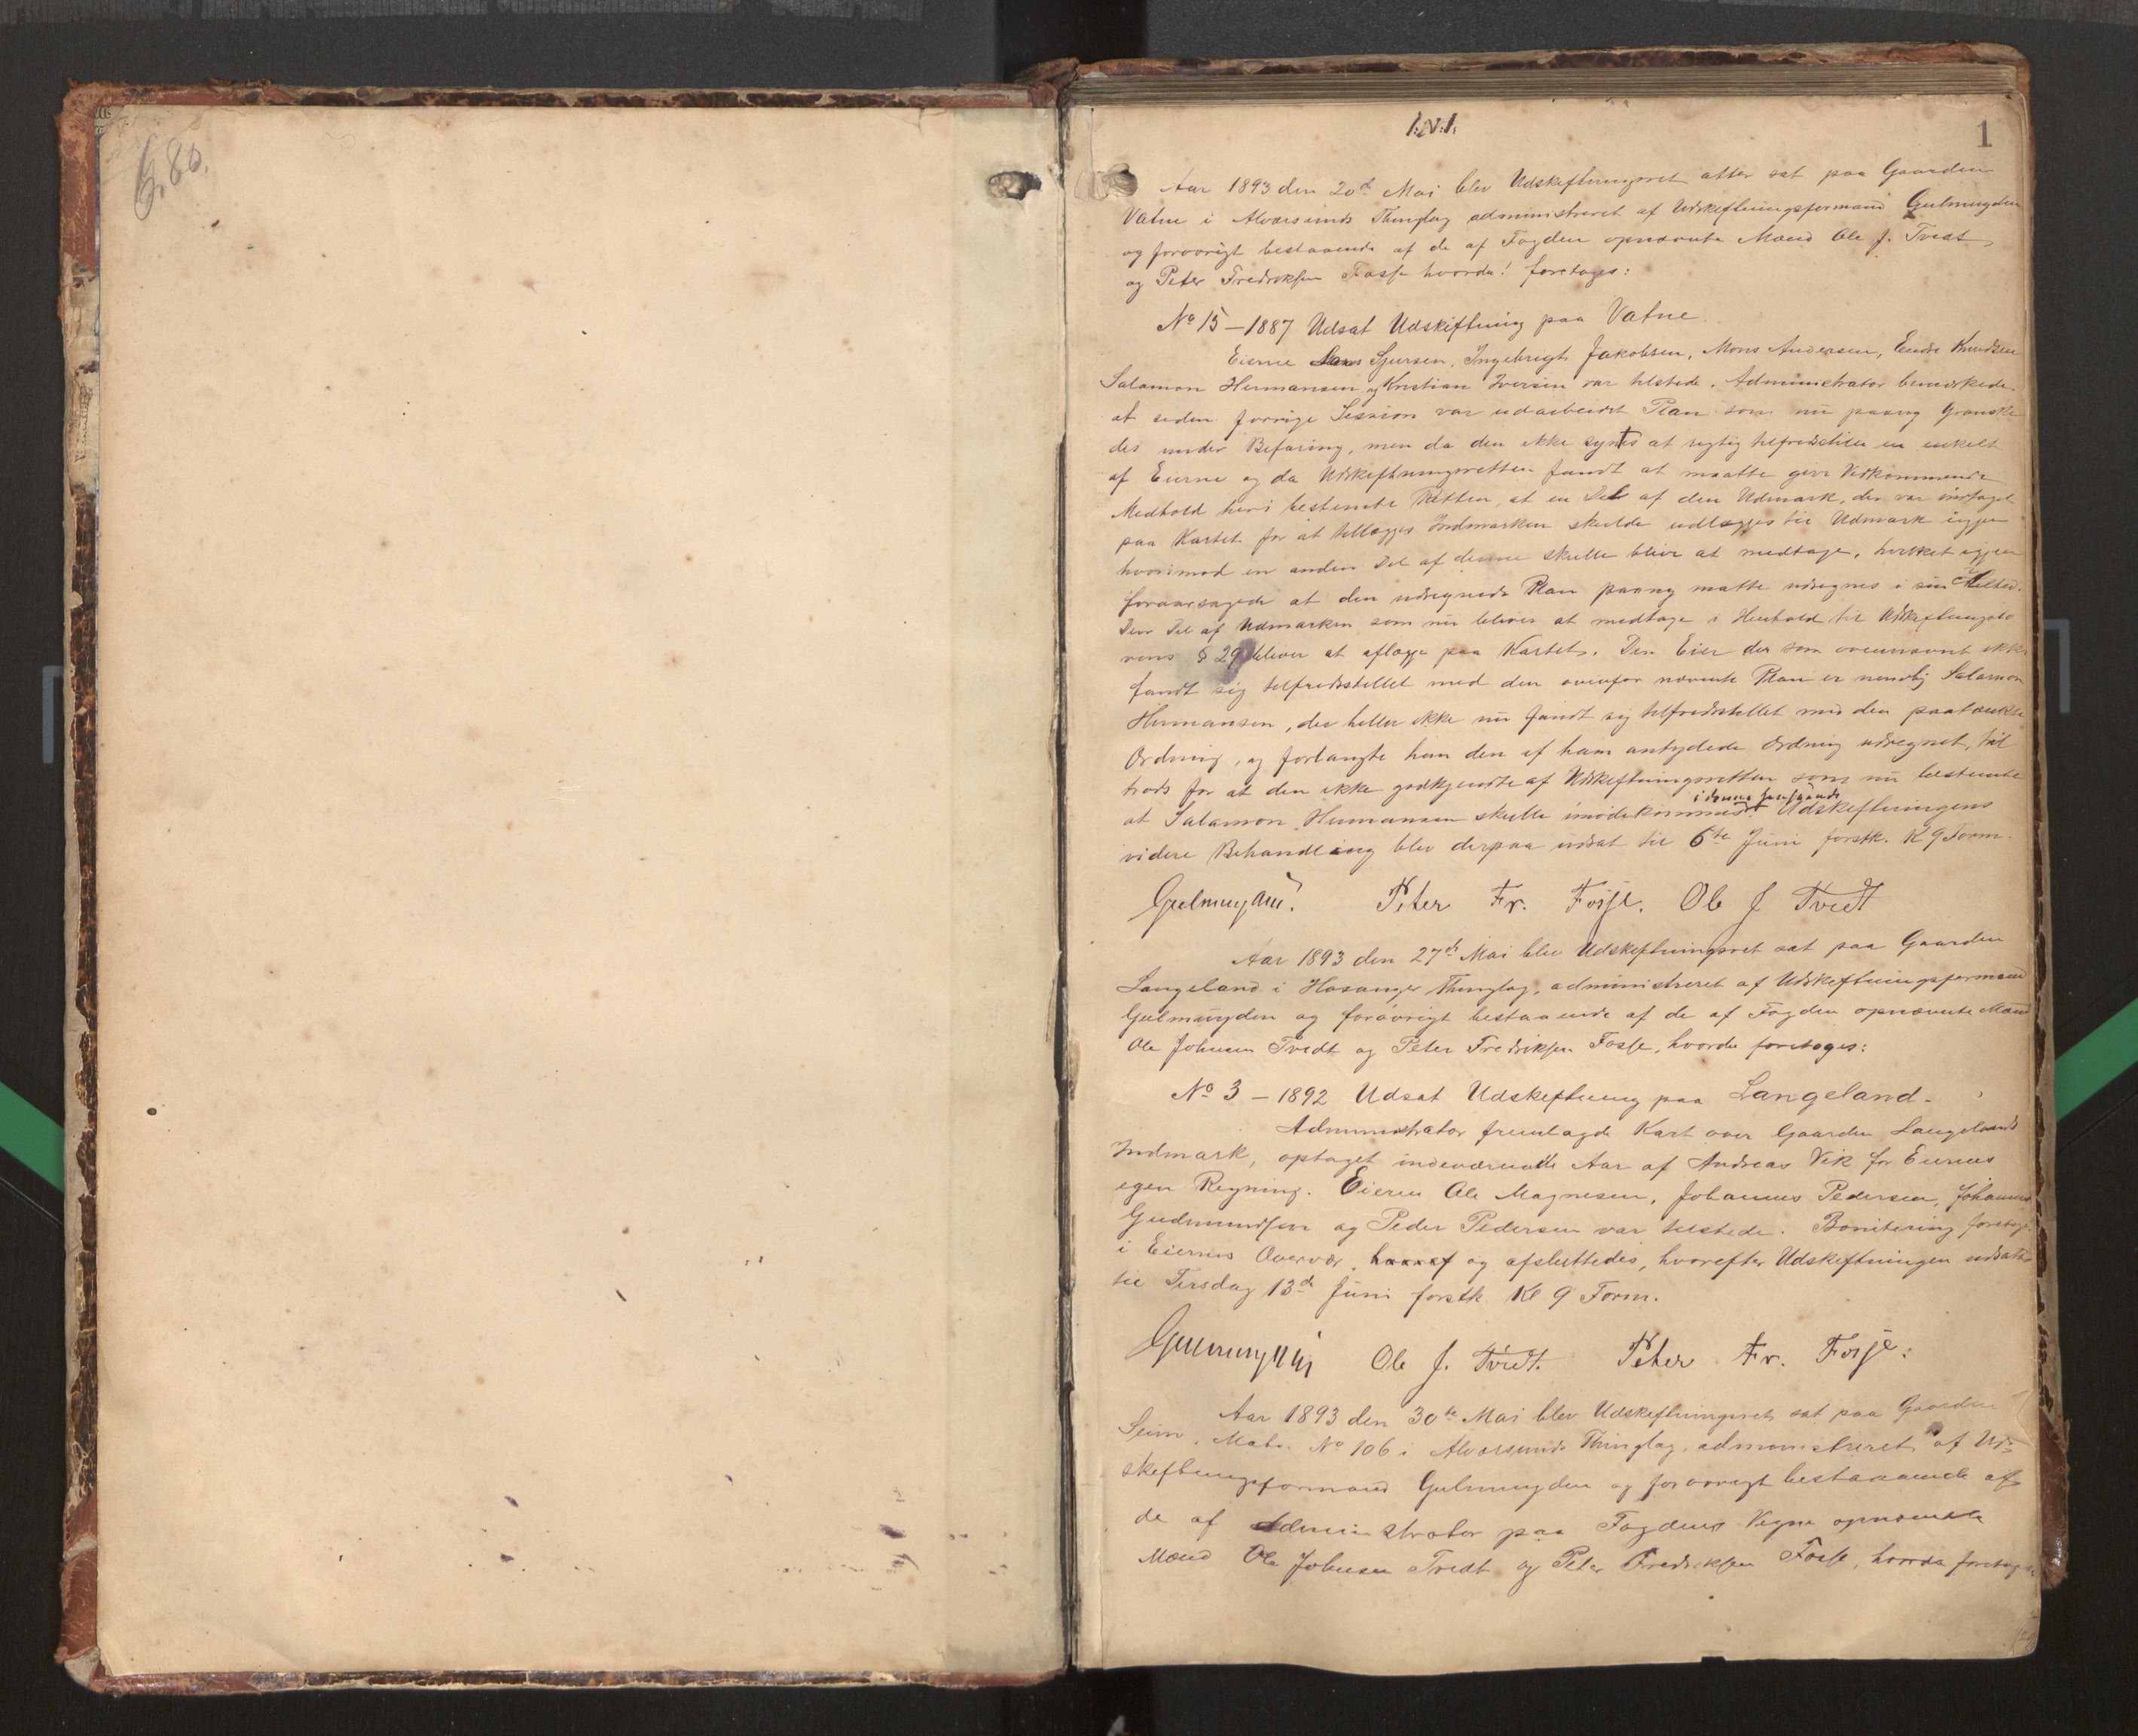 6.80.
I.N.I.
1
Aar 1893 den 20de Mai blev Udskiftningsret atter sat paa Gaarden
Vatne i Alversunds Thinglag administreret af Udskiftningsformand Gulmeyden
og forøvrigt bestaaende af de af Fogden opnævnte Mænd Ole J. Tvedt,
og Peter Fredriksen Fosse hvorda! foretoges:
No 15 – 1887 Udsat Udskiftning paa Vatne.
Eierne Lars Sjursen, Ingebrigt Jakobsen, Mons Andersen, Endre Knudsen
Salamon Hermansen og Kristian Iversen var tilstede. Administrator bemærkede
at siden forrige Session var udarbeidet Plan som nu paany granske
des under Befaring, men da den ikke syntes at rigtig tilfredsstille en enkelt
af Eierne og da Udskiftningsretten fandt at maatte give Vedkommende
Medhold heri bestemte Retten, at en Del af den Udmark, der var indtaget
paa Kartet for at tillægges Indmarken skulde udlægges til Udmark igjen
hvorimod en anden Del af denne skulle blive at medtage, hvilket igjen
foraarsagede at den udregnede Plan paany matte udregnes i sin Helhed.
Den Del af Udmarken som nu bliver at medtage i Henhold til Udskiftningslo
vens § 29 bliver at aflægge paa Kartet. Den Eier der som ovennævnt ikke
fandt sig tilfredsstillet med den ovenfor nævnte Plan er nemlig Salamon
Hermansen, der heller ikke nu fandt sig tilfredsstillet med den paatænkte
Ordning, og forlangte han den af ham antydede Ordning udregnet, til
trods for at den ikke godkjendtes af Udskiftningsretten som nu bestemte
i denne henseende
at Salamon Hermansen skulle imødekommes. Udskiftningens
videre Behandling blev derpaa udsat til 6te Juni førstk. Kl 9 Form.
Gulmeyden. Peter Fr. Fosse. Ole J Tvedt
Aar 1893 den 27de Mai blev Udskiftningsret sat paa Gaarden
Langeland i Hosanger Thinglag, administreret af Udskiftningsformand
Gulmeyden og forøvrigt bestaaende af de af Fogden opnævnte Mænd
Ole Johnsen Tvedt og Peter Fredriksen Fosse, hvorda foretoges:
No 3 – 1892 Udsat Udskiftning paa Langeland.
Administrator fremlagde Kart over Gaarden Langelands
Indmark, optaget indeværende Aar af Andreas Vik for Eiernes
egen Regning. Eierne Ole Magnesen, Johannes Pedersen, Johannes
Gudmundsen og Peder Pedersen var tilstede. Bonitering foretoges
i Eiernes Overvær og afsluttedes, hvorefter Udskiftningen udsattes
til Tirsdag 13de Juni førstk Kl 9 Form.
Gulmeyden Ole J. Tvedt. Peter Fr. Fosse:
Aar 1893 den 30te Mai blev Udskiftningsret sat paa Gaarden
Seim, Matr. No 106 i Alversunds Thinglag, administreret af Ud-
skiftningsformand Gulmeyden og forøvrigt bestaaende af
de af Administrator paa Fogdens Vegne opnævnte
Mænd Ole Johnsen Tvedt og Peter Fredriksen Fosse, hvorda foretoges